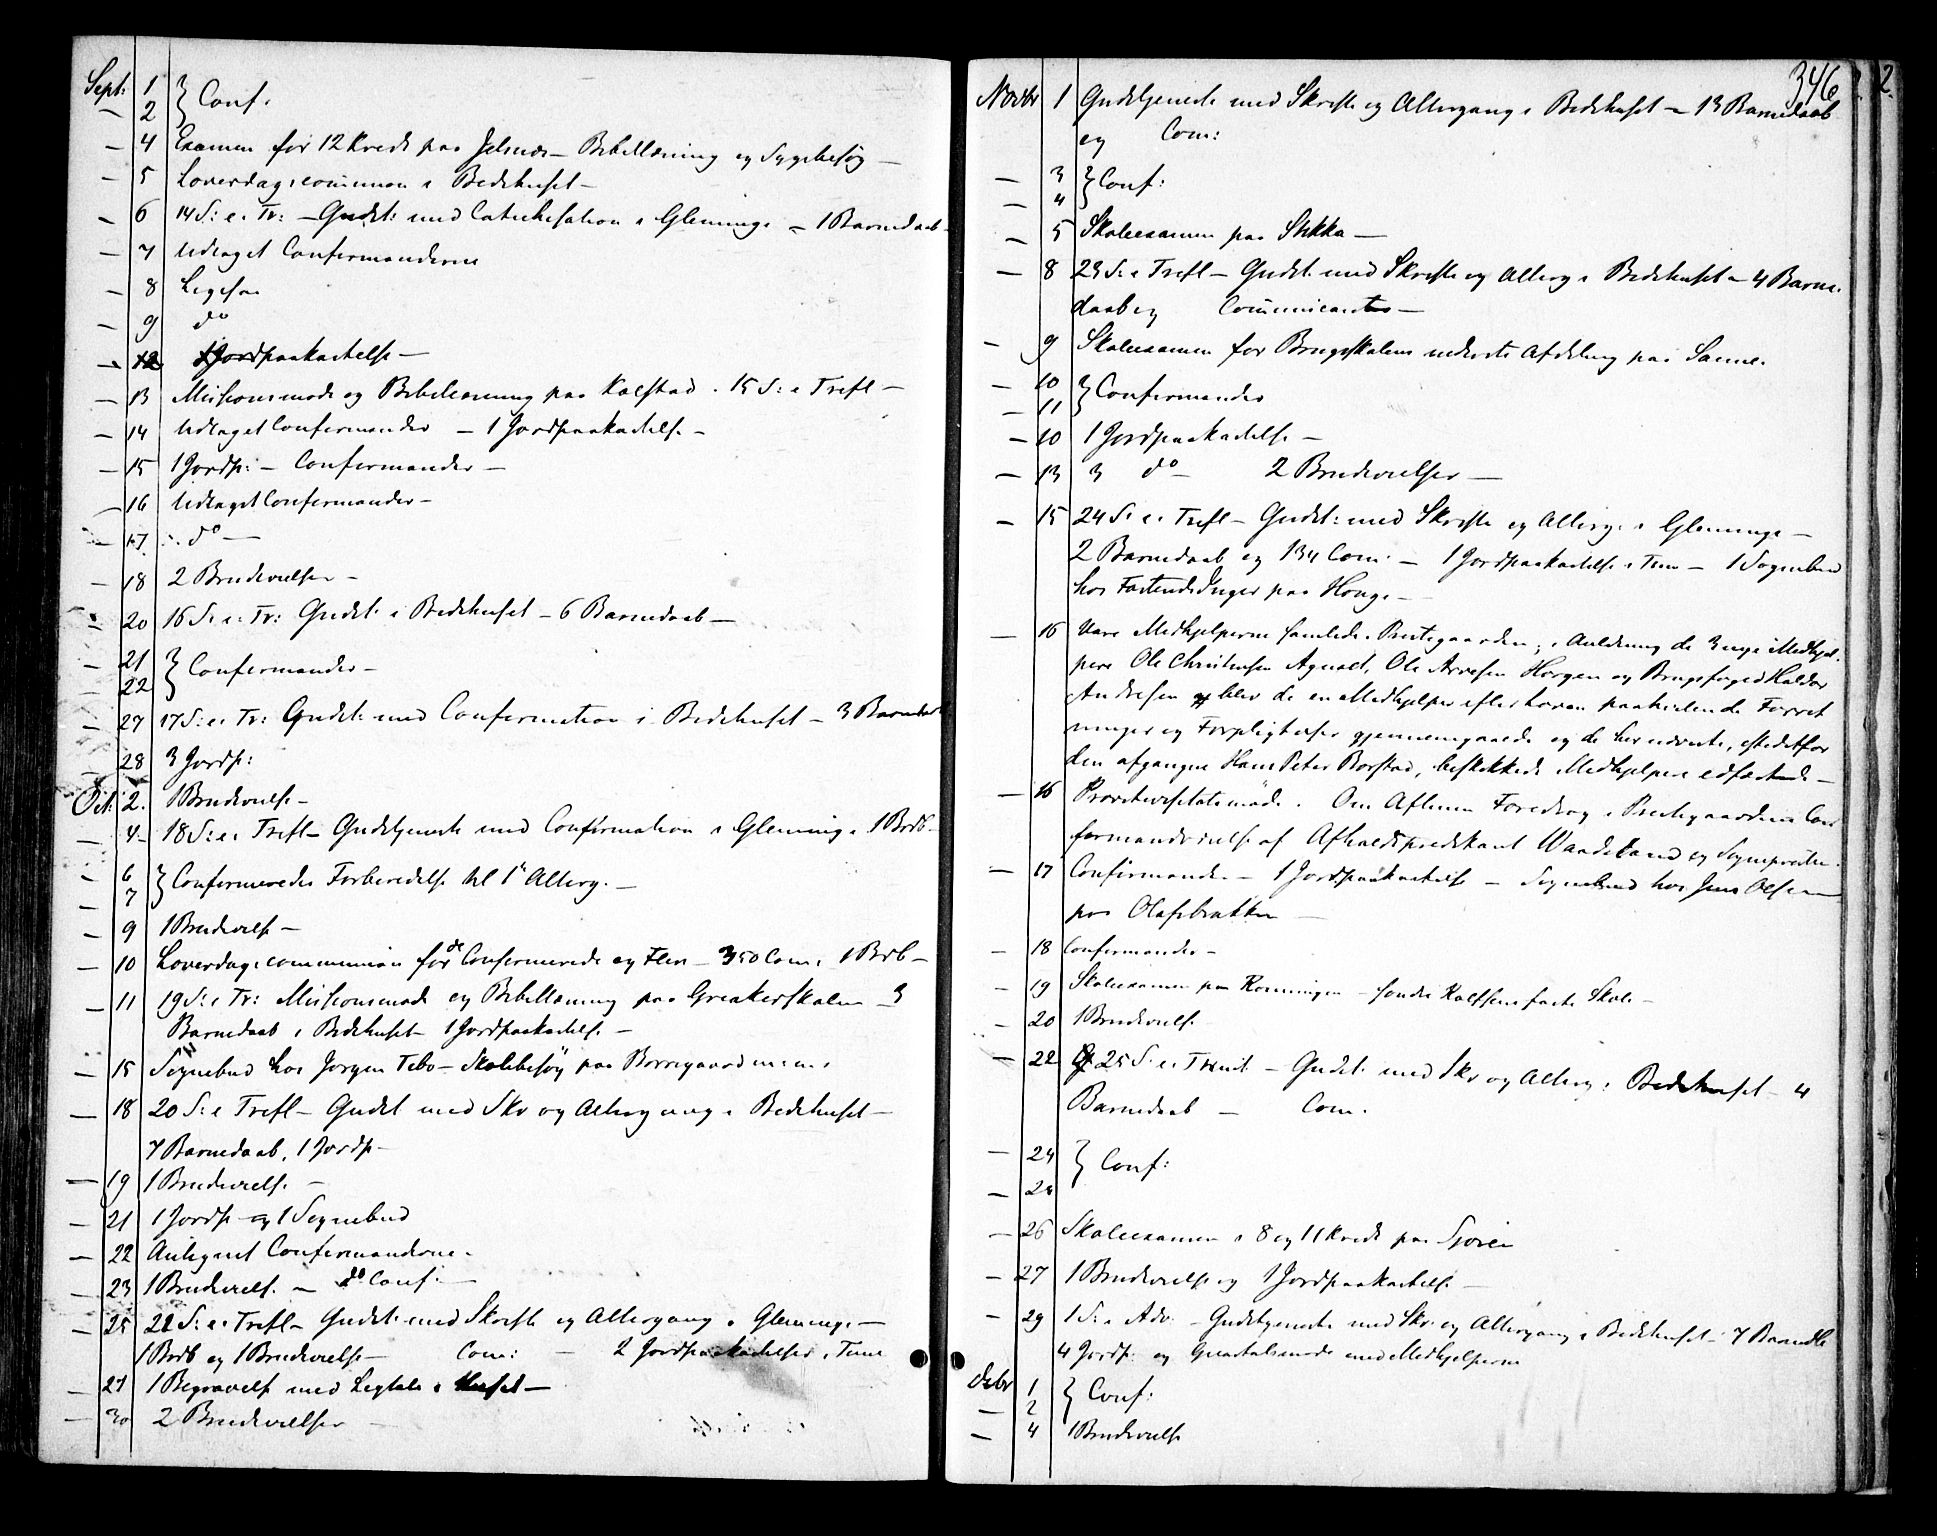 Sept: 1 } Conf:
— 2
— 4 Examen for 12 Kreds paa Jelsnæs — Bibellæsning og Sygebesøg —
— 5 Løverdagscommunion i Bedehuset —
— 6 14 S: e. Tr: — Gudst: med Catechisation i Glemminge — 1 Barnedaab —
— 7 Udtaget Confirmanderne
— 8 Ligesaa
— 9 do
— 12 1 Jordpaakastelse —
— 13 Missionsmøde og Bibellæsning paa Kalstad. 15 S: e Trefl —
— 14 Udtaget Confirmander — 1 Jordpaakastelse —
— 15 1 Jordp: — Confirmander —
— 16 Udtaget Confirmander —
— 17 do —
— 18 2 Brudevielser —
— 20 16 S. e. Tr: Gudst: i Bedehuset — 6 Barnedaab —
— 21 } Confirmander —
— 22
— 27 17 S: e. Tr: Gudst: med Confirmation i Bedehuset — 3 Barnedaab
— 28 3 Jordp:
Oct: 2. 1 Brudevielse —
— 4 18 S: e. Trefl — Gudstjeneste med Confirmation i Glemminge 1 Brdb —
— 6 } Confirmeredes Forberedelse til 1e Alterg. —
— 7
— 9 1 Brudevielse —
— 10 Løverdagscommunion for de Confirmerede og Flere — 350 Com. 1 Brdb —
— 11 19 S: e Tr: Missionsmøde og Bibellæsning paa Greakerskolen — 3
Barnedaab i Bedehuset — 1 Jordpaakastelse —
— 15 Sognebud hos Jørgen Tebo — Skolebesøg paa Borregaard
— 18 20 S: e Trefl — Gudst med Skr og Altergang i Bedehuset —
7 Barnedaab, 1 Jordp —
— 19 1 Brudevielse —
— 21 1 Jordp og 1 Sognebud
— 22 Antegnet Confirmanderne —
— 23 1 Brudevielse — do Conf: —
— 25 22 S: e. Trefl — Gudst: med Skrifte og Altergang i Glemminge —
1 Brdb og 1 Brudevielse — Com: — 2 Jordpaakastelser i Tune
— 27 1 Begravelse med Ligtale i Huset —
— 30 2 Brudevielser —
346
Novbr 1 Gudstjeneste med Skrifte og Altergang i Bedehuset — 13 Barnedaab
og Com:
— 3 } Conf:
— 4
— 5 Skoleexamen paa Stikka —
— 8 23 S. e Trefl — Gudst: med Skrifte og Alterg i Bedehuset — 4 Barne-
daab og Communicantes —
— 9 Skoleexamen for Brugsskolens nederste Afdeling paa Sanne.
— 10 } Confirmander
— 11
— 10 1 Jordpaakastelse —
— 13 3 do — 2 Brudevielser —
— 15 24 S. e. Trefl — Gudst: med Skrifte og Alterg. i Glemminge —
2 Barnedaab og 134 Com: — 1 Jordpaakastelse i Tune — 1 Sognebud
hos Inger paa Hauge —
— 16 Vare Medhjelperne samlede i Prestegaarden, i Anledning de 3 nye Medhjel-
pere Ole Christensen Agnalt, Ole Arnesen Horgen og Brugsfoged Haldor
Andresen blev de en Medhjelper efter Loven paahvilende Forret
ninger og Forpligtelser gjennemgaaede og de her nævnte, istedetfor
den afgangne Hans Peter Borstad, beskikkede Medhjelpere edfæstede —
— 16 Provstevisitatsmøde. Om Aftenen Foredrag i Prestegaardens Con
firmandværelse af Afholdspredikant Waadeland og Sognepresten.
— 17 Confirmander — 1 Jordpaakastelse — Sognebud hos Jens Olsen
paa Olafsbrakken —
— 18 Confirmander —
— 19 Skoleexamen paa Rønningen — faste Skole —
— 20 1 Brudevielse
— 22 25 S. e. Trinit — Gudst: med Skr og Alterg i Bedehuset — 4
Barnedaab — Com.
— 24 } Conf:
— 25
— 26 Skoleexamen i 8 og 11 Kreds paa
— 27 1 Brudevielse og 1 Jordpaakastelse —
— 29 1 S. i Adv. — Gudstjeneste med Skr. og Altergang i Bedehuset — 7 Barnedb
4 Jordp: og Quartalsmøde med Medhjelperne
Debr 1 } Conf:
— 2
— 4 1 Brudevielse